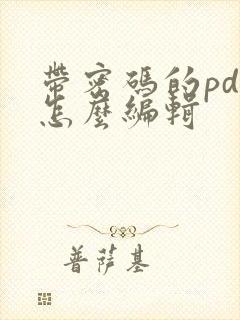 帶密碼的pd
怎麼編輯
普薩基